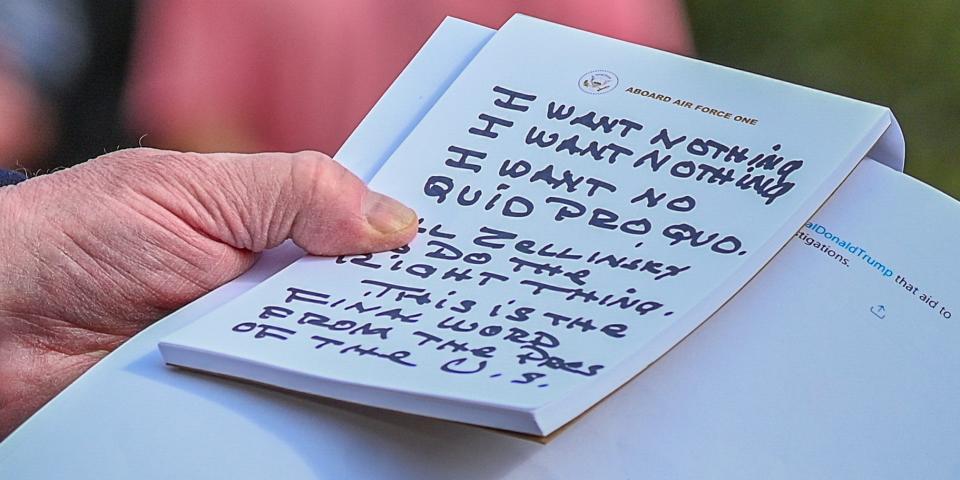 ABOARD AIR FORCE ONE
I WANT NOTHING
I WANT NOTHING
I WANT NO
QUID PRO QUO.
LL ZELLINSKY
DO THE
RIGHT THING.
THIS IS THE
FINAL WORD
FROM THE PRES
OF THE U.S.
alDonaldTrump that aid to
tigations.